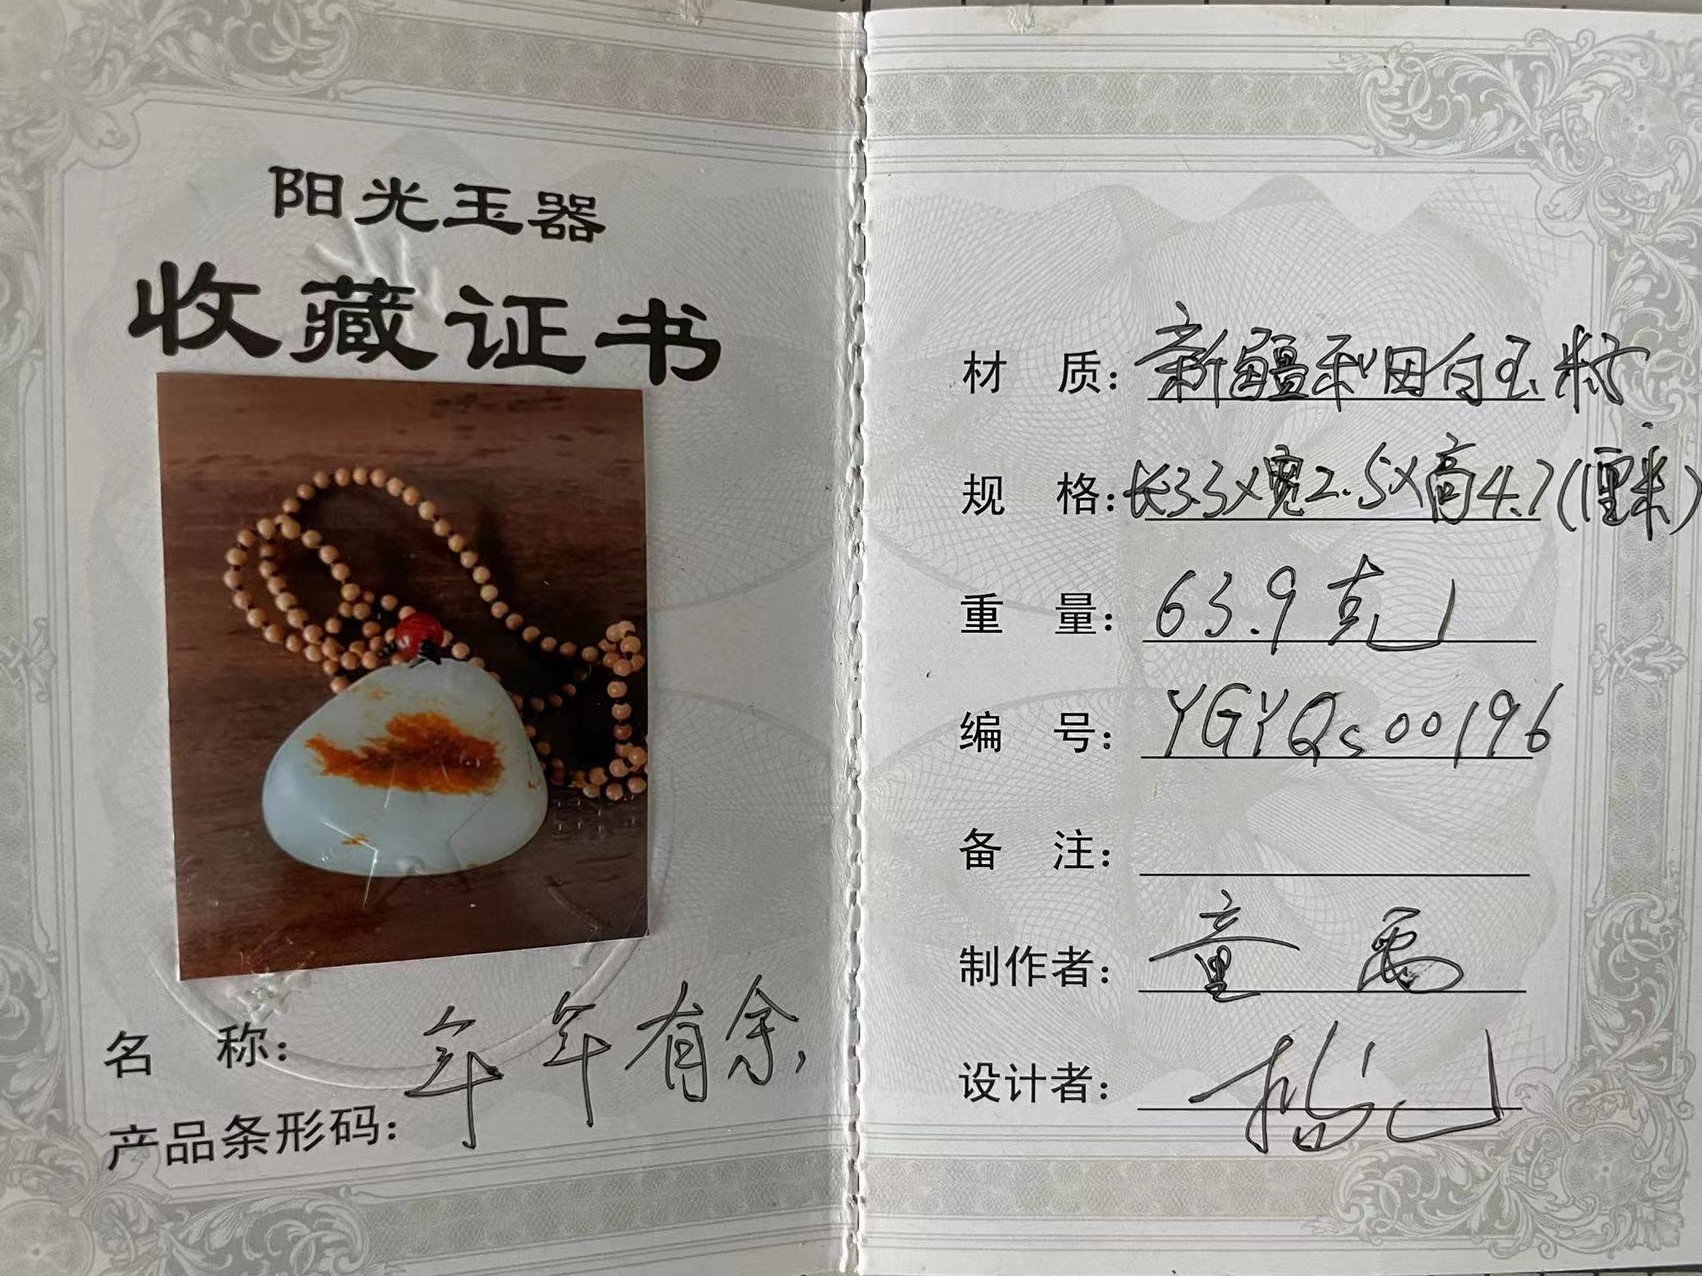 阳光玉器
收藏证书
名 称: 年年有余
产品条形码:
材 质: 新疆和田白玉籽
规 格: 长3.3×宽2.5×高4.7(厘米)
重 量: 63.9克
编 号: YGYQs00196
备 注:
制作者: 童
设计者: